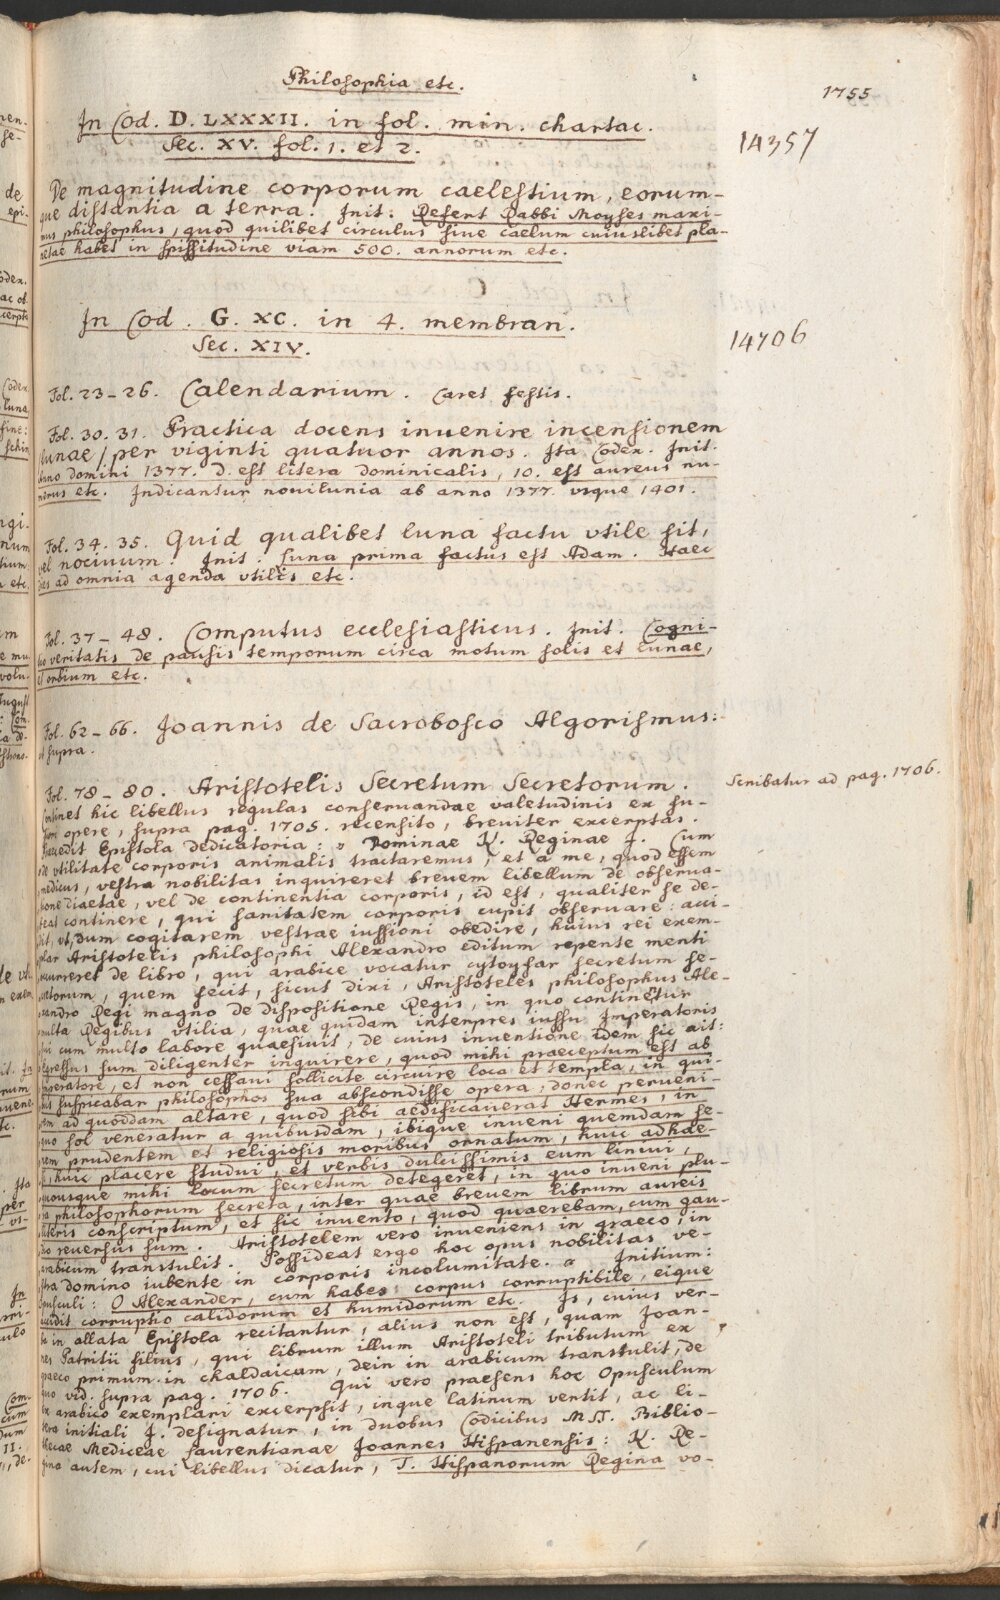 Philosophia etc.
1755
In Cod. D. LXXXII. in fol. min. chartac.
Sec. XV. fol. 1. et 2.
14357
De magnitudine corporum caelestium, eorum-
que distantia a terra. Init: Refert Rabbi Moyses maxi-
mus philosophus, quod quilibet circulus sive caelum cuiuslibet pla-
netae habet in spissitudine viam 500. annorum etc.
In Cod. G. XC. in 4. membran.
Sec. XIV.
14706
Fol. 23-26. Calendarium. Caret festis.
Fol. 30. 31. Practica docens invenire incensionem
lunae, per viginti quatuor annos. Ita Codex. Init.
Anno domini 1377. D. est litera dominicalis, 10. est aureus nu-
merus etc. Indicantur novilunia ab anno 1377. vsque 1401.
Fol. 34. 35. Quid qualibet luna factu vtile sit,
vel nocivum. Init. Luna prima factus est Adam. Haec
dies ad omnia agenda vtilis etc.
Fol. 37-48. Computus ecclesiasticus. Init. Cogni-
tio veritatis de pausis temporum circa motum solis et lunae,
et orbium etc.
Fol. 62-66. Joannis de Sacrobosco Algorismus:
vt supra.
Fol. 78-80. Aristotelis Secretum Secretorum.
Scribatur ad pag. 1706.
Continet hic libellus regulas conservandae valetudinis ex su-
opere, supra pag. 1705. recensito, breviter excerptas.
Praecedit Epistola dedicatoria: Dominae K. Reginae J. Cum
de vtilitate corporis animalis tractaremus, et a me, quod essem
medicus, vestra nobilitas inquireret brevem libellum de observa-
tione diaetae, vel de continentia corporis, id est, qualiter se de-
beat continere, qui sanitatem corporis cupit observare: acci-
dit, vt, dum cogitarem vestrae iussioni obedire, huius rei exem-
plar Aristotelis philosophi Alexandro editum repente menti
occurreret de libro, qui arabice vocatur cytoysar secretum se-
cretorum, quem fecit, sicut dixi, Aristoteles philosophus Ale-
xandro Regi magno de dispositione Regis, in quo continetur
multa Regibus vtilia, quae quidam interpres iussu Imperatoris
sui cum multo labore quaesivit, de cuius inventione idem sic ait:
Egressus sum diligenter inquirere, quod mihi praeceptum est ab
Imperatore, et non cessavi sollicite circuire loca et templa, in qui-
bus suspicabar philosophos sua abscondisse opera, donec perveni-
rem ad quoddam altare, quod sibi aedificaverat Hermes, in
quo sol veneratur a quibusdam, ibique inveni quemdam se-
nem prudentem et religiosis moribus ornatum, huic adhae-
si, huic placere studui, et verbis dulcissimis eum linivi,
quousque mihi locum secretum detegeret, in quo inveni plu-
ra philosophorum secreta, inter quae brevem librum aureis
litteris conscriptum, et sic invento, quod quaerebam, cum gau-
dio reversus sum. Aristotelem vero inveniens in graeco, in
arabicum transtulit. Possideat ergo hoc opus nobilitas ve-
stra domino iubente in corporis incolumitate. Initium:
Opusculi: O Alexander, cum habes corpus corruptibile, eique
accidit corruptio calidorum et humidorum etc. Is, cuius ver-
ba in allata Epistola recitantur, alius non est, quam Joan-
nes Patritii filius, qui librum illum Aristoteli tributum ex
graeco primum in chaldaicam, dein in arabicum transtulit, de
quo vid. supra pag. 1706. Qui vero praesens hoc Opusculum
ex arabico exemplari excerpsit, inque latinum vertit, ac li-
tera initiali J. designatur, in duobus Codicibus MST. Biblio-
thecae Mediceae Laurentianae Joannes Hispanensis: K. Re-
gina autem, cui libellus dicatur, T. Hispanorum Regina vo-